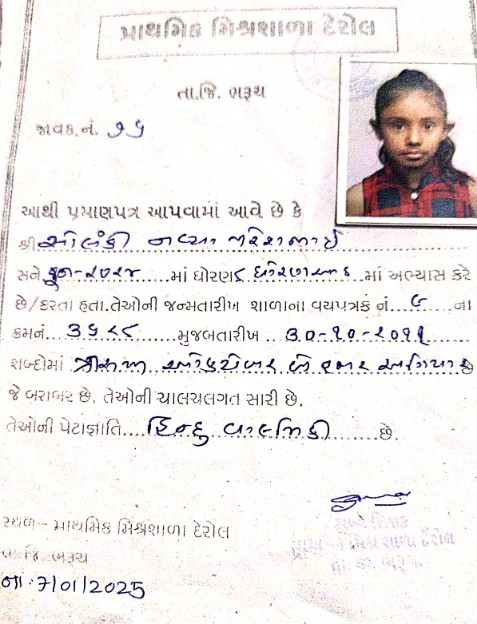 પ્રાથમિક મિશ્રશાળા દેરોલ
તા.જિ. ભરૂચ
જાવક.નં. ૧૬
આથી પ્રમાણપત્ર આપવામાં આવે છે કે
શ્રી સોલંકી નવ્યા નરેશભાઈ
સને જુન-૨૦૨૪ માં ધોરણ ૮ માં અભ્યાસ કરે
છે/કરતા હતા.તેઓની જન્મતારીખ શાળાના વયપત્રક નં. ૬ ના
ક્રમનં. ૩૬૨૮ મુજબતારીખ .. ૩૦-૧૦-૨૦૧૧
શબ્દોમાં ત્રીસમી ઓક્ટોબર બે હજાર અગિયાર છે
જે બરાબર છે. તેઓની ચાલચલગત સારી છે.
તેઓની પેટાજ્ઞાતિ....હિન્દુ વાલ્મિકી........છે.
સ્થળ- પ્રાથમિક મિશ્રશાળા દેરોલ
તા.જિ. ભરૂચ
તા: 7/01/2025
મુખ્ય શિક્ષક
પ્રાથમિક મિશ્ર શાળા દેરોલ
તા. જી. ભરૂચ